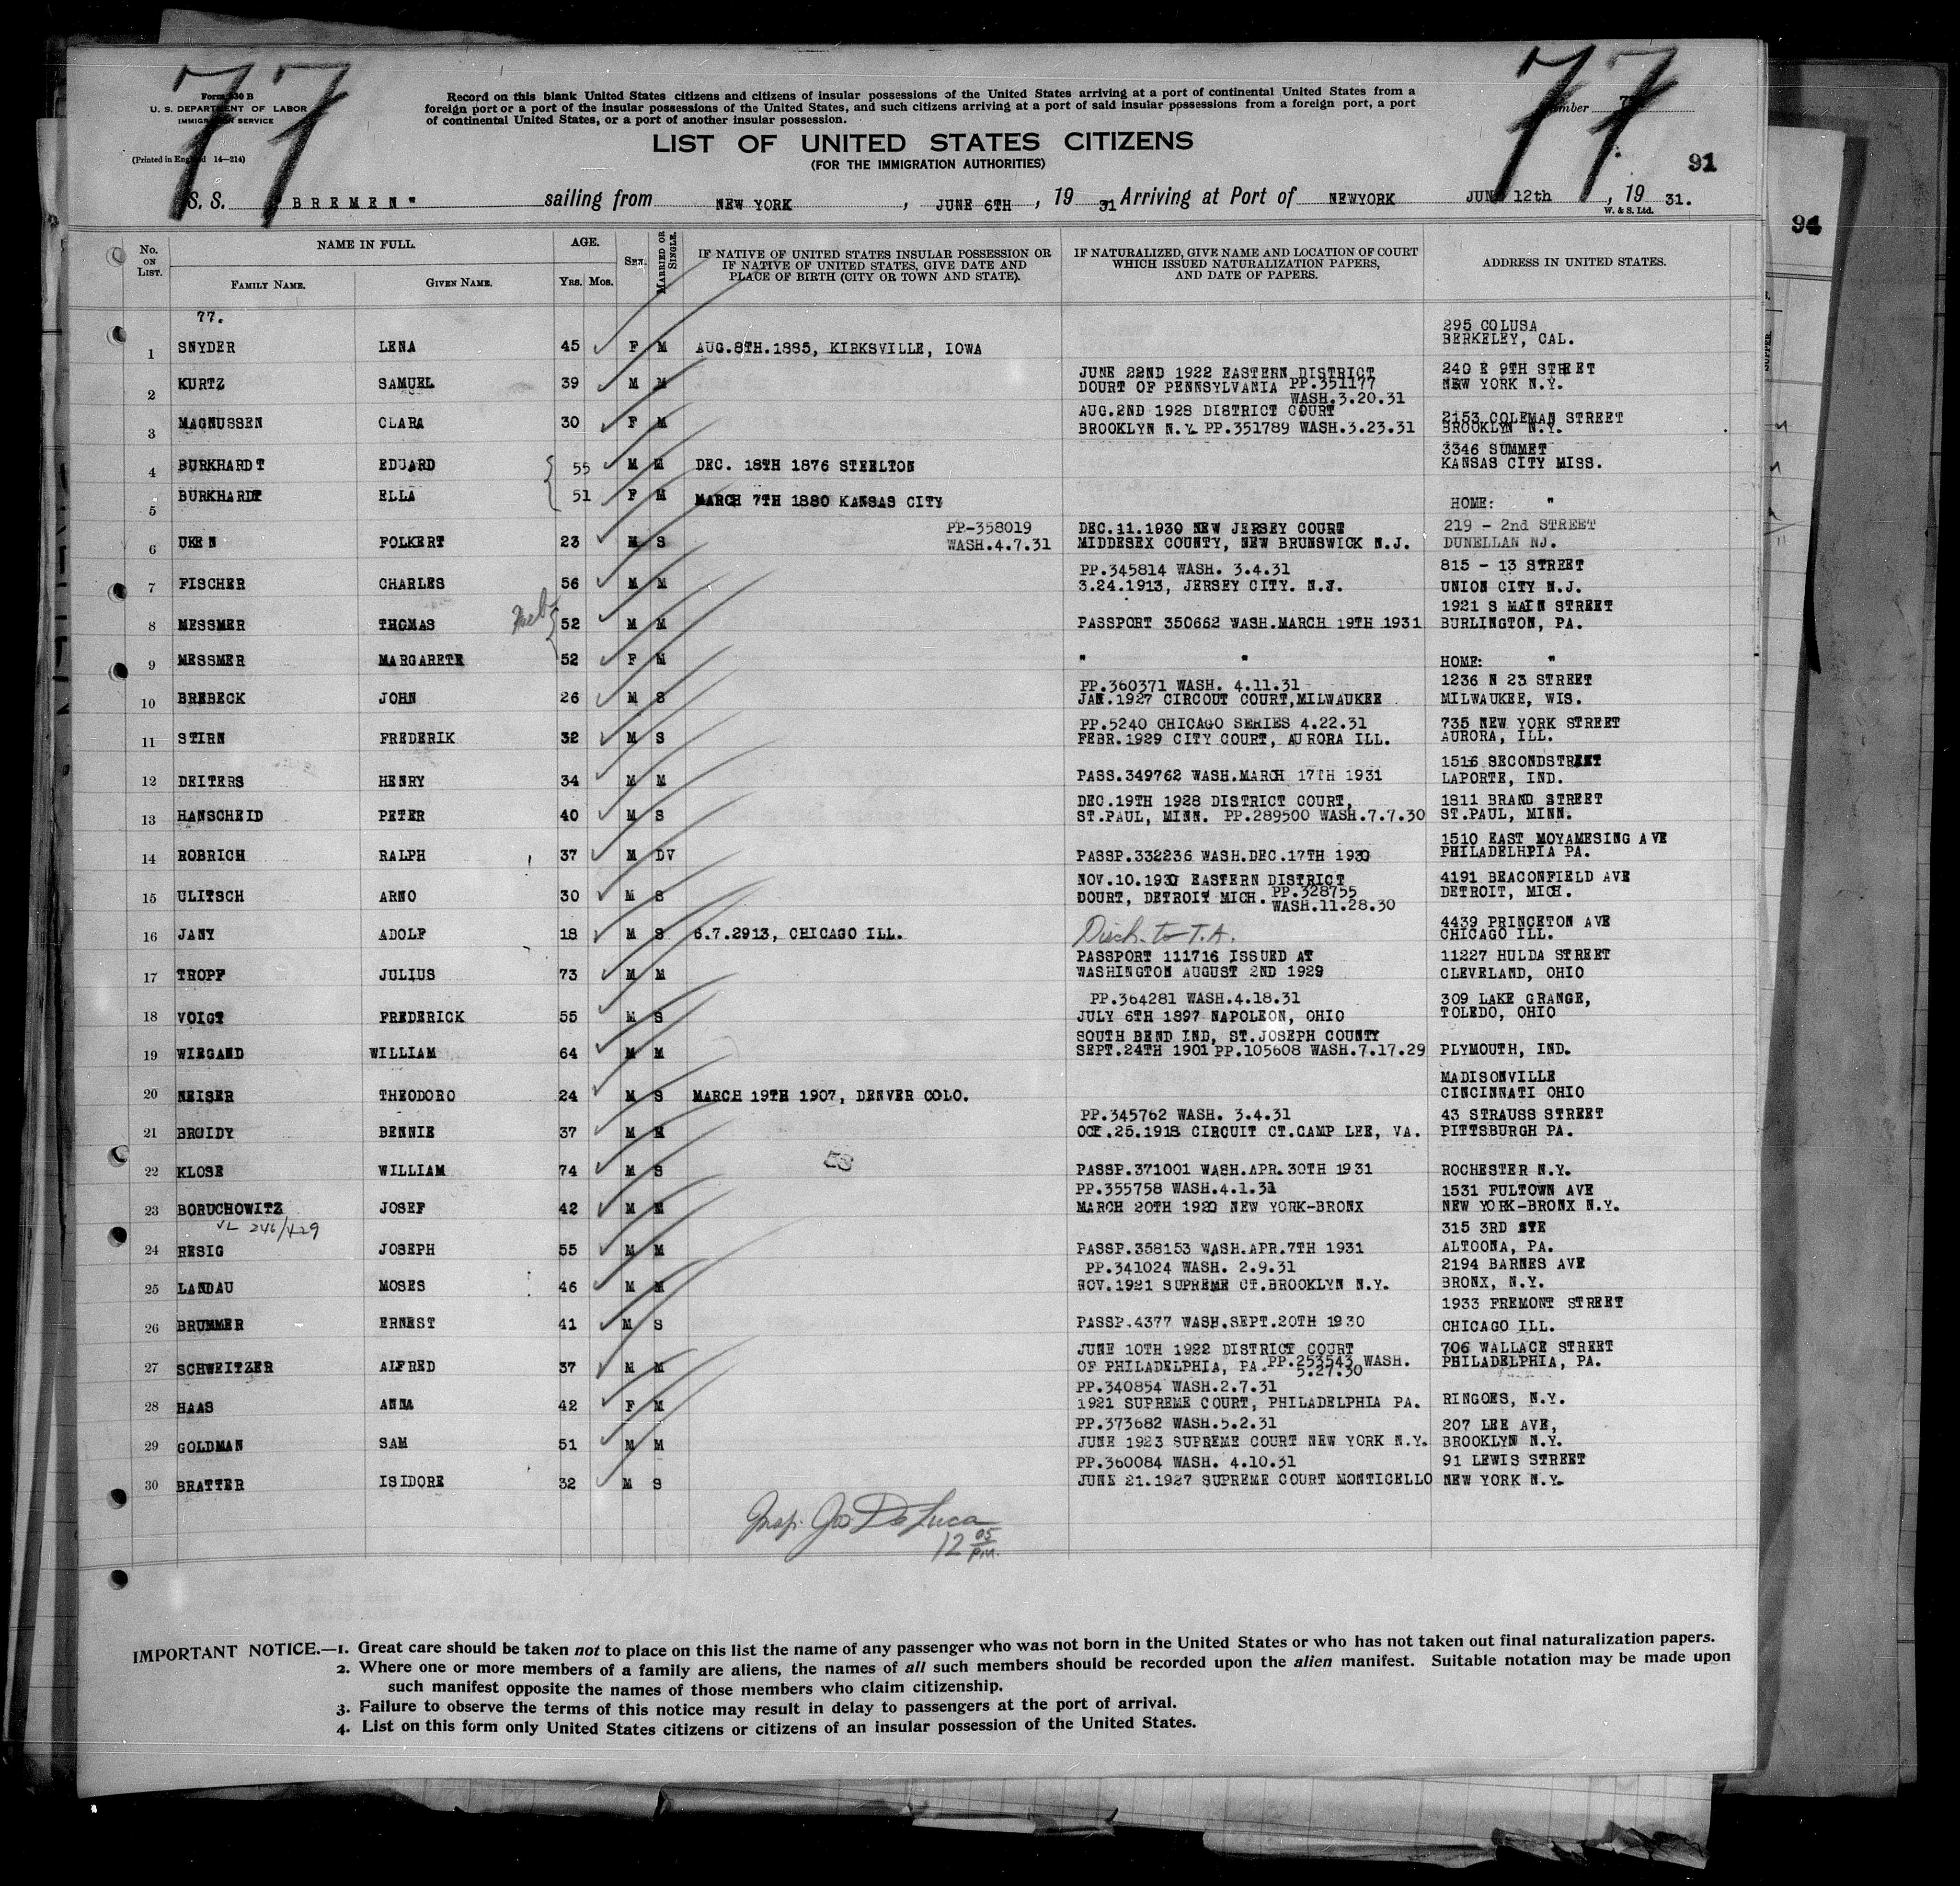 77 77
Form 630 B
U. S. DEPARTMENT OF LABOR
IMMIGRATION SERVICE
(Printed in England 14—214)
Record on this blank United States citizens and citizens of insular possessions of the United States arriving at a port of continental United States from a
foreign port or a port of the insular possessions of the United States, and such citizens arriving at a port of said insular possessions from a foreign port, a port
of continental United States, or a port of another insular possession.
LIST OF UNITED STATES CITIZENS
(FOR THE IMMIGRATION AUTHORITIES)
91
94
S. S. BREMEN" sailing from NEW YORK, JUNE 6TH, 19 31 Arriving at Port of NEWYORK JUNE 12th, 19 31.
W. & S. Ltd.
No. ON LIST. NAME IN FULL. FAMILY NAME. GIVEN NAME. AGE. Yrs. Mos. SEX. MARRIED OR SINGLE.
IF NATIVE OF UNITED STATES INSULAR POSSESSION OR
IF NATIVE OF UNITED STATES, GIVE DATE AND
PLACE OF BIRTH (CITY OR TOWN AND STATE).
IF NATURALIZED, GIVE NAME AND LOCATION OF COURT
WHICH ISSUED NATURALIZATION PAPERS,
AND DATE OF PAPERS.
ADDRESS IN UNITED STATES.
77.
295 COLUSA
1 SNYDER LENA 45 F M AUG.8TH.1885, KIRKSVILLE, IOWA BERKELEY, CAL.
JUNE 22ND 1922 EASTERN DISTRICT 240 E 9TH STREET
2 KURTZ SAMUEL 39 M M DOURT OF PENNSYLVANIA PP.351177 NEW YORK N.Y.
WASH.3.20.31
AUG.2ND 1928 DISTRICT COURT 2153 COLEMAN STREET
3 MAGNUSSEN CLARA 30 F M BROOKLYN N.Y. PP.351789 WASH.3.23.31 BROOKLYN N.Y.
3346 SUMMET
4 BURKHARDT EDUARD 55 M M DEC. 18TH 1876 STEELTON KANSAS CITY MISS.
5 BURKHARDT ELLA 51 F M MARCH 7TH 1880 KANSAS CITY HOME: "
PP-358019 DEC.11.1930 NEW JERSEY COURT 219 - 2nd STREET
6 UKEN FOLKERT 23 M S WASH.4.7.31 MIDDESEX COUNTY, NEW BRUNSWICK N.J. DUNELLAN NJ.
PP.345814 WASH. 3.4.31 815 - 13 STREET
7 FISCHER CHARLES 56 M M 3.24.1913, JERSEY CITY. N.J. UNION CITY N.J.
1921 S MAIN STREET
8 MESSMER THOMAS 52 M M PASSPORT 350662 WASH.MARCH 19TH 1931 BURLINGTON, PA.
9 MESSMER MARGARETE 52 F M " " HOME: "
PP.360371 WASH. 4.11.31 1236 N 23 STREET
10 BREBECK JOHN 26 M S JAN.1927 CIRCOUT COURT,MILWAUKEE MILWAUKEE, WIS.
PP.5240 CHICAGO SERIES 4.22.31 735 NEW YORK STREET
11 STIRN FREDERIK 32 M S FEBR.1929 CITY COURT, AURORA ILL. AURORA, ILL.
1516 SECONDSTREET
12 DEITERS HENRY 34 M M PASS.349762 WASH.MARCH 17TH 1931 LAPORTE, IND.
DEC.19TH 1928 DISTRICT COURT, 1811 BRAND STREET
13 HANSCHEID PETER 40 M S ST.PAUL, MINN. PP.289500 WASH.7.7.30 ST.PAUL, MINN.
1510 EAST MOYAMESING AVE
14 ROBRICH RALPH 37 M DV PASSP.332236 WASH.DEC.17TH 1930 PHILADELHPIA PA.
NOV.10.1930 EASTERN DISTRICT 4191 BEACONFIELD AVE
15 ULITSCH ARNO 30 M S DOURT, DETROIT MICH. PP.328755 DETROIT, MICH.
WASH.11.28.30
4439 PRINCETON AVE
16 JANY ADOLF 18 M S 6.7.2913, CHICAGO ILL. Disch. to T.A. CHICAGO ILL.
PASSPORT 111716 ISSUED AT 11227 HULDA STREET
17 TROPF JULIUS 73 M M WASHINGTON AUGUST 2ND 1929 CLEVELAND, OHIO
PP.364281 WASH.4.18.31 309 LAKE GRANGE,
18 VOIGT FREDERICK 55 M S JULY 6TH 1897 NAPOLEON, OHIO TOLEDO, OHIO
SOUTH BEND IND, ST.JOSEPH COUNTY
19 WIEGAND WILLIAM 64 M M SEPT.24TH 1901 PP.105608 WASH.7.17.29 PLYMOUTH, IND.
MADISONVILLE
20 NEISER THEODORO 24 M S MARCH 19TH 1907, DENVER COLO. CINCINNATI OHIO
PP.345762 WASH. 3.4.31 43 STRAUSS STREET
21 BROIDY BENNIE 37 M M OCT.25.1918 CIRCUIT CT.CAMP LEE, VA. PITTSBURGH PA.
22 KLOSE WILLIAM 74 M S PASSP.371001 WASH.APR.30TH 1931 ROCHESTER N.Y.
PP.355758 WASH.4.1.31 1531 FULTOWN AVE
23 BORUCHOWITZ JOSEF 42 M M MARCH 20TH 1920 NEW YORK-BRONX NEW YORK-BRONX N.Y.
VL 246/429 315 3RD STE
24 RESIG JOSEPH 55 M M PASSP.358153 WASH.APR.7TH 1931 ALTOONA, PA.
PP.341024 WASH. 2.9.31 2194 BARNES AVE
25 LANDAU MOSES 46 M M NOV.1921 SUPREME CT.BROOKLYN N.Y. BRONX, N.Y.
1933 FREMONT STREET
26 BRUMMER ERNEST 41 M S PASSP.4377 WASH.SEPT.20TH 1930 CHICAGO ILL.
JUNE 10TH 1922 DISTRICT COURT 706 WALLACE STREET
27 SCHWEITZER ALFRED 37 M M OF PHILADELPHIA, PA. PP.253543 WASH. PHILADELPHIA, PA.
5.27.30
PP.340854 WASH.2.7.31
28 HAAS ANNA 42 F M 1921 SUPREME COURT, PHILADELPHIA PA. RINGOES, N.Y.
PP.373682 WASH.5.2.31 207 LEE AVE,
29 GOLDMAN SAM 51 M M JUNE 1923 SUPREME COURT NEW YORK N.Y. BROOKLYN N.Y.
PP.360084 WASH. 4.10.31 91 LEWIS STREET
30 BRATTER ISIDORE 32 M S JUNE 21.1927 SUPREME COURT MONTICELLO NEW YORK N.Y.
Insp. Jos De Luca
12 05 PM.
IMPORTANT NOTICE.—1. Great care should be taken not to place on this list the name of any passenger who was not born in the United States or who has not taken out final naturalization papers.
2. Where one or more members of a family are aliens, the names of all such members should be recorded upon the alien manifest. Suitable notation may be made upon
such manifest opposite the names of those members who claim citizenship.
3. Failure to observe the terms of this notice may result in delay to passengers at the port of arrival.
4. List on this form only United States citizens or citizens of an insular possession of the United States.